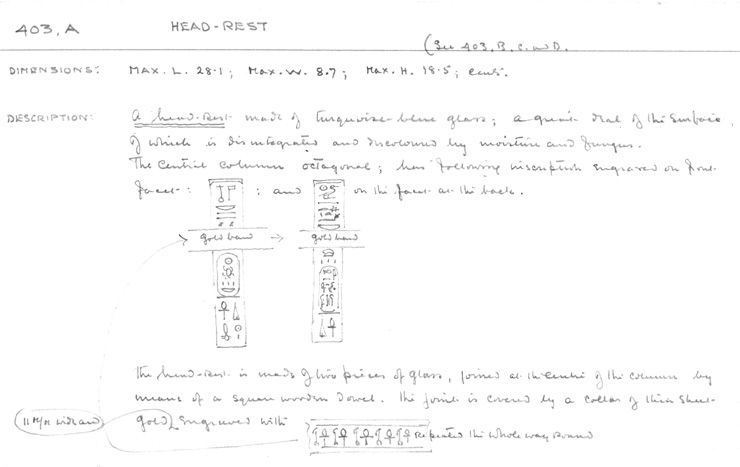 403, A HEAD-REST
(See 403. B, C. and D.
DIMENSIONS: MAX. L. 28·1; Max. W. 8.7; Max. H. 18·5; cents.
DESCRIPTION: A head-rest made of turquoise-blue glass; a great deal of the surface,
of which is disintegrated and discoloured by moisture and fungus.
The central column octagonal; has following inscription engraved on front
facet: ; and on the facet at the back.
gold band gold band
The head-rest is made of two pieces of glass, joined at the centre of the column by
means of a square wooden dowel. The joint is covered by a collar of thin sheet-
(11 M/M wide and) gold, engraved with repeated the whole way round